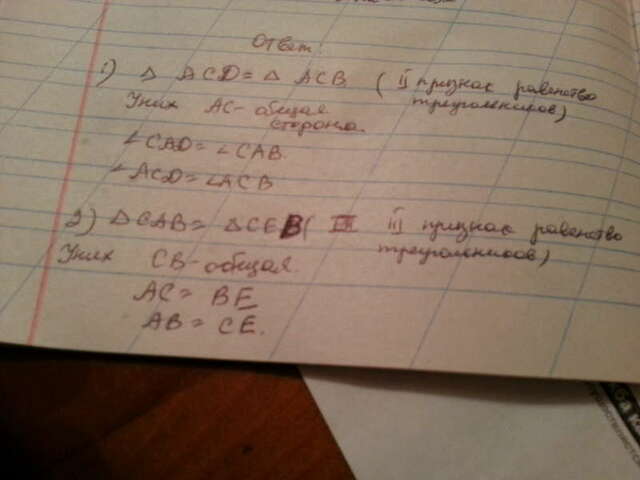 Ответ.
1) △ ACD = △ ACB ( II признак равенство треугольников)
У них AC - общая сторона.
∠CAD = ∠CAB.
∠ACD = ∠ACB
2) △CAB = △CEB ( III II признак равенство треугольников)
У них CB - общая.
AC = BE
AB = CE.